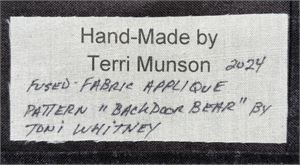 Hand-Made by
Terri Munson 2024
FUSED-FABRIC APPLIQUE
PATTERN "BACKDOOR BEAR" BY
TONI WHITNEY